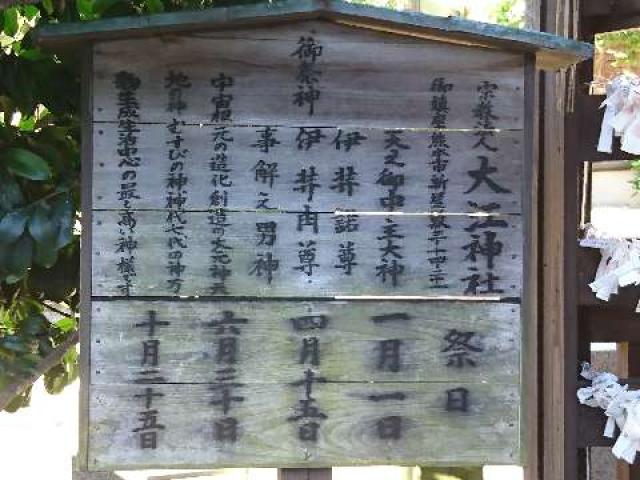 宗教法人 大江神社
御鎮座 熊本市新屋敷
天之御中主大神
伊弉諾尊
御祭神 伊弉冉尊
事解之男神
宇宙根元の造化創造の大元神天
地の神 むすびの神 神代七代の神 万
物生成生命心の最も高い神様です
祭日
一月一日
四月十五日
六月三十日
十月二十五日